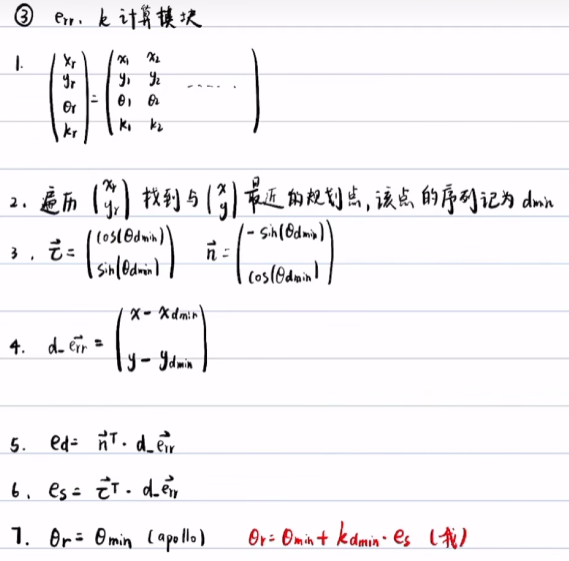 ③ err, k 计算模块
1. (xr yr θr kr) = (x1 x2 y1 y2 θ1 θ2 k1 k2 ......)
2. 遍历 (xr yr) 找到与 (x y) 最近的规划点,该点的序列记为 dmin
3. τ⃗ = (cos(θdmin) sin(θdmin)) n⃗ = (-sin(θdmin) cos(θdmin))
4. d_err⃗ = (x - xdmin y - ydmin)
5. ed = n⃗ᵀ · d_err⃗
6. es = τ⃗ᵀ · d_err⃗
7. θr = θmin (apollo) θr = θmin + kdmin · es (我)